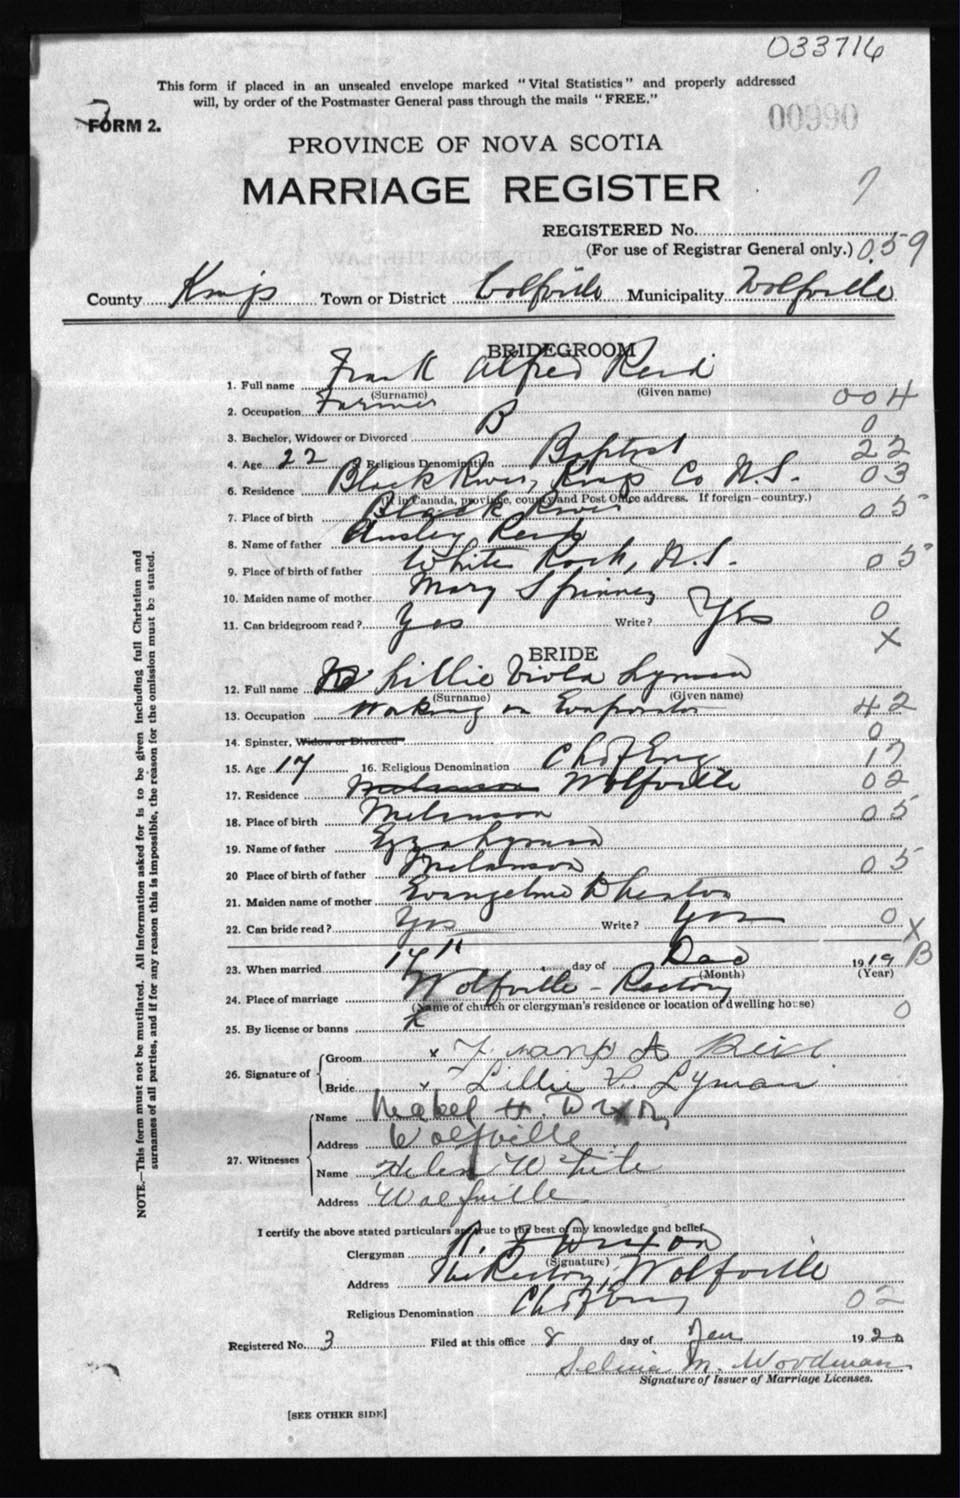 033716
This form if placed in an unsealed envelope marked "Vital Statistics" and properly addressed
will, by order of the Postmaster General pass through the mails "FREE."
00990
FORM 2.
PROVINCE OF NOVA SCOTIA
MARRIAGE REGISTER
REGISTERED No.
(For use of Registrar General only.) 059
County Kings Town or District Wolfville Municipality Wolfville
BRIDEGROOM
1. Full name Frank Alfred Reid
(Surname) (Given name)
2. Occupation Farmer 004
3. Bachelor, Widower or Divorced B 0
4. Age 22 5. Religious Denomination Baptist 22
6. Residence Black River, Kings Co N.S. 03
(If in Canada, province, county and Post Office address. If foreign—country.)
7. Place of birth Black River 05
8. Name of father Ansley Reid
9. Place of birth of father White Rock, N.S. 05
10. Maiden name of mother Mary Spinney
11. Can bridegroom read? Yes Write? Yes 0
X
BRIDE
12. Full name Lillie Viola Lyman
(Surname) (Given name)
13. Occupation Working in Evaporator 42
14. Spinster, Widow or Divorced 0
15. Age 17 16. Religious Denomination Ch of Eng 17
17. Residence Melanson Wolfville 02
18. Place of birth Melanson 05
19. Name of father Ezra Lyman
20 Place of birth of father Melanson 05
21. Maiden name of mother Evangeline
22. Can bride read? Yes Write? Yes 0 X
23. When married 17th day of Dec 1919 B
(Month) (Year)
24. Place of marriage Wolfville - Rectory
(Name of church or clergyman's residence or location of dwelling house) 0
25. By license or banns
26. Signature of
Groom x Frank A Reid
Bride x Lillie V. Lyman
27. Witnesses
Name Mabel H. Dixon
Address Wolfville
Name Helen White
Address Wolfville
I certify the above stated particulars are true to the best of my knowledge and belief.
Clergyman R. F. Dixon
(Signature)
Address The Rectory, Wolfville
Religious Denomination Ch of Eng 02
Registered No. 3 Filed at this office 8 day of Jan 1920
Selina M. Woodman
Signature of Issuer of Marriage Licenses.
[SEE OTHER SIDE]
NOTE.—This form must not be mutilated. All information asked for is to be given including full Christian and
surnames of all parties, and if for any reason this is impossible, the reason for the omission must be stated.